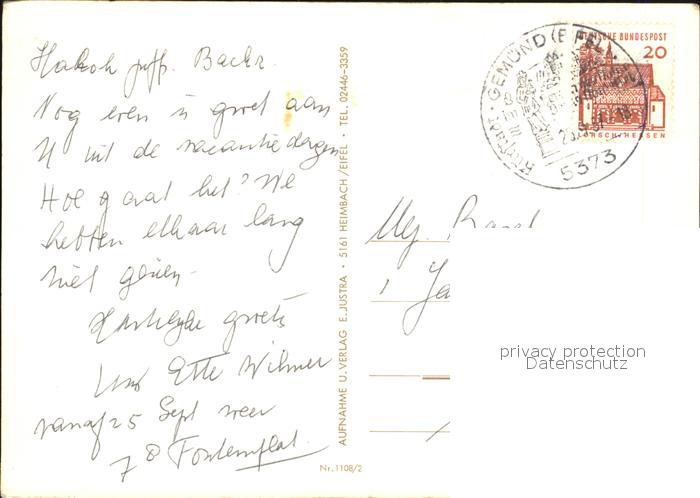 Nog even 'n groet aan
U uit de vacantiedagen
Hoe gaat het? We
hebben elkaar lang
niet gezien.
Hartelyke groets
Wilmer
vanaf 25 Sept weer
AUFNAHME U. VERLAG E. JUSTRA · 5161 HEIMBACH/EIFEL · TEL. 02446-3359
Nr. 1108/2
GEMÜND (EIFEL)
5373
DEUTSCHE BUNDESPOST
20
LORSCH-HESSEN
privacy protection
Datenschutz